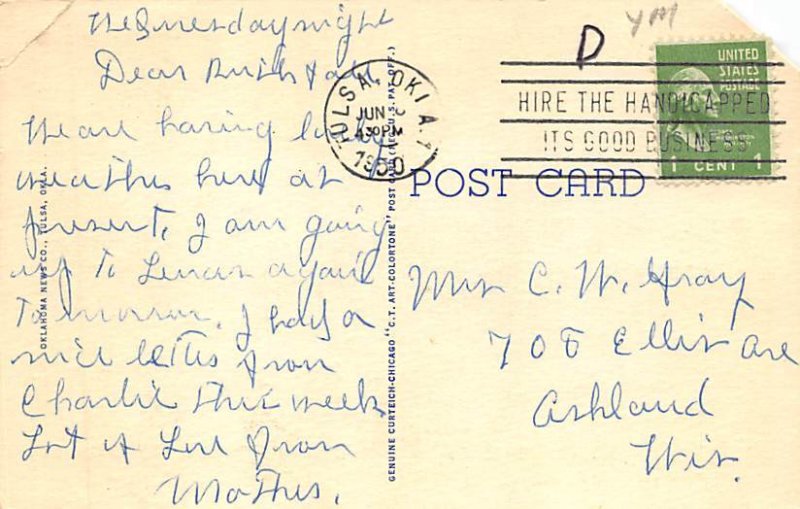 Wednesday night
Dear Ruth & all,
We are having lovely
weather here at
present, I am going
up to Lenora again
Tomorrow. I had a
nice letter from
Charlie this week
Lot of Love from
Mother.
OKLAHOMA NEWS CO., TULSA, OKLA.
GENUINE CURTEICH-CHICAGO "C.T. ART-COLORTONE" POST CARD (REG. U.S. PAT. OFF.)
D
YM
TULSA, OKLA. 1
JUN
4 30 PM
1950
HIRE THE HANDICAPPED
ITS GOOD BUSINESS
UNITED
STATES
POSTAGE
1 CENT 1
POST CARD
Mrs C. W. Gray
708 Ellis Ave
Ashland
Wis.